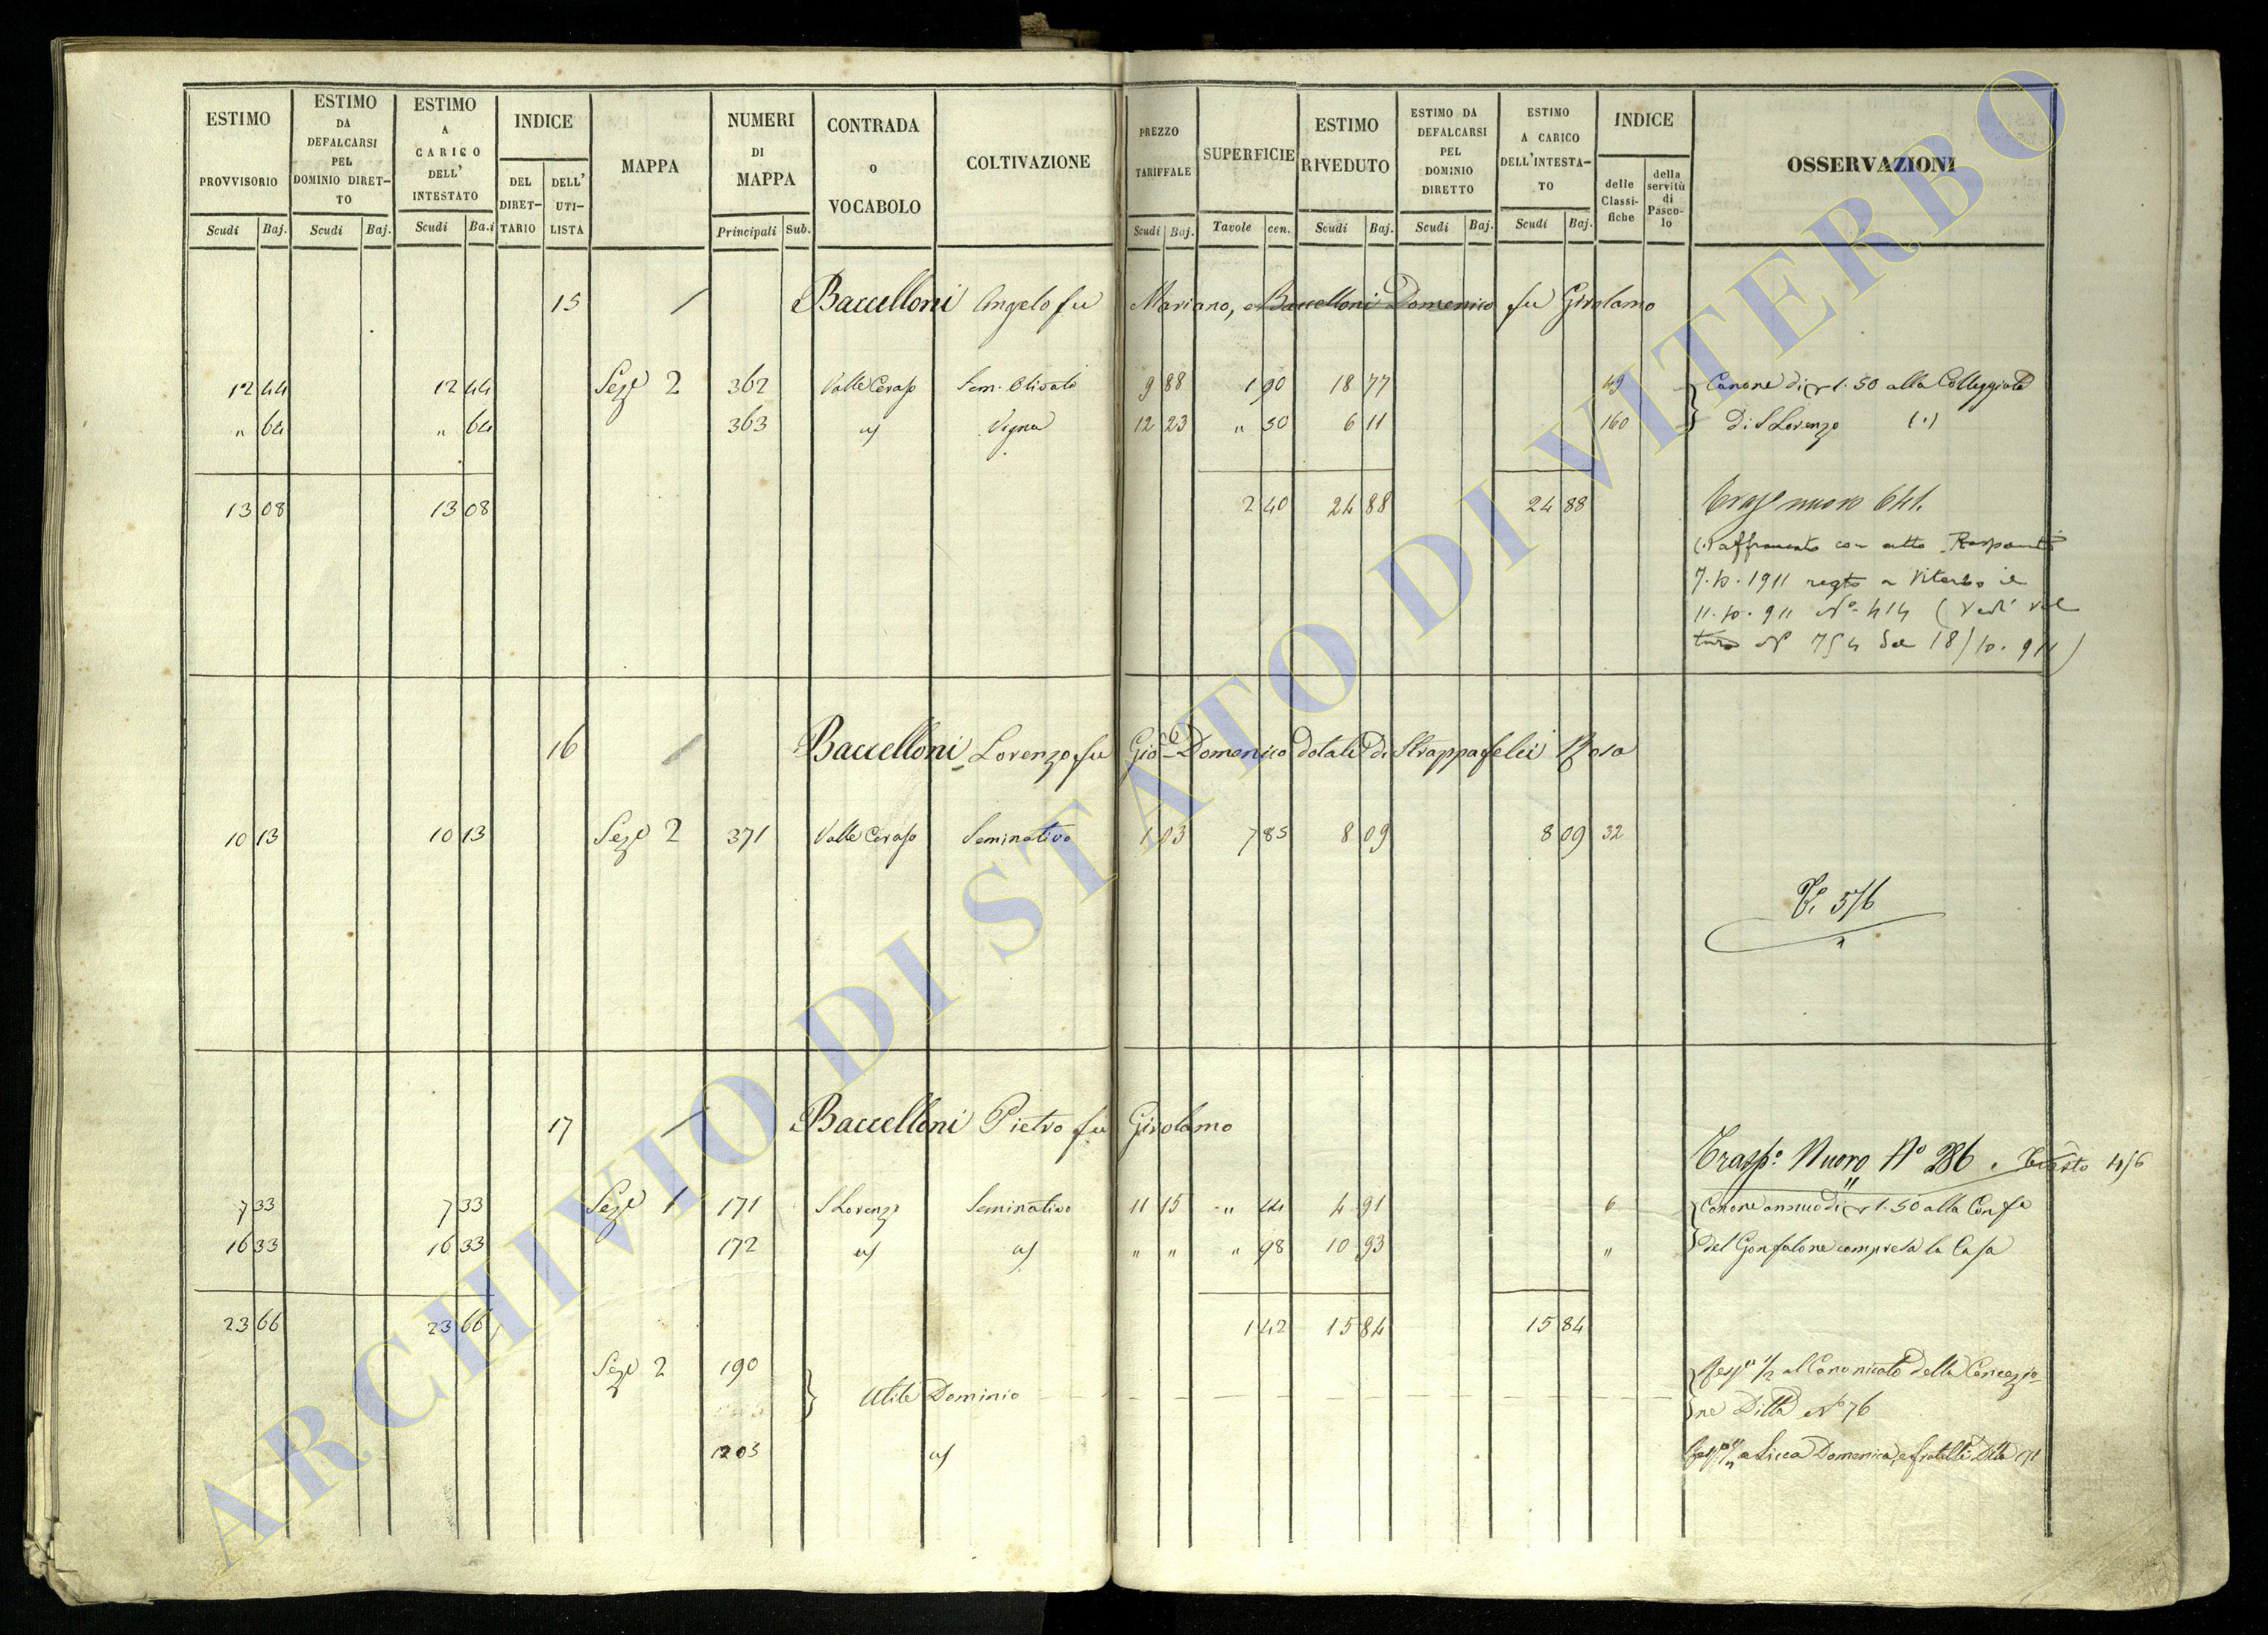 ESTIMO PROVVISORIO Scudi Baj.
ESTIMO DA DEFALCARSI PEL DOMINIO DIRET-TO Scudi Baj.
ESTIMO A CARICO DELL' INTESTATO Scudi Ba.i
INDICE DEL DIRET-TARIO DELL' UTI-LISTA
MAPPA
NUMERI DI MAPPA Principali Sub.
CONTRADA o VOCABOLO
COLTIVAZIONE
PREZZO TARIFFALE Scudi Baj.
SUPERFICIE Tavole cen.
ESTIMO RIVEDUTO Scudi Baj.
ESTIMO DA DEFALCARSI PEL DOMINIO DIRETTO Scudi Baj.
ESTIMO A CARICO DELL'INTESTA-TO Scudi Baj.
INDICE delle Classi-fiche della servitù di Pasco-lo
OSSERVAZIONI
15 Baccelloni Angelo fu Mariano, e Baccelloni Domenico fu Girolamo
12 44 12 44 Seze 2 362 Valle Ceraso Sem. Olivato 9 88 1 90 18 77 49 Canone di 1.50 alla Colleggiata
" 64 " 64 363 Vigna 12 23 " 50 6 11 160 Di S Lorenzo (.)
13 08 13 08 2 40 24 88 24 88 nuovo 641.
(.) affrancato con atto
7.10.1911 regto a Viterbo il
11.10.911 No 414 (Vedi vol
tura No 754 del 18/10.911)
16 Baccelloni Lorenzo fu Gio Domenico dotali di Strappafelci Rosa
10 13 10 13 Seze 2 371 Valle Ceraso Seminativo 1 03 7 85 8 09 8 09 32
V. 576
17 Baccelloni Pietro fu Girolamo
Traspo. Nuovo No 286 e 456
7 33 7 33 Seze 1 171 S Lorenzo Seminativo 11 15 " 44 4 91 6 Canone annuo di 1.50 alla Confa
16 33 16 33 172 " " " 98 10 93 " del Gonfalone compresa la Casa
23 66 23 66 1 42 15 84 15 84
Seze 2 190 Utile Dominio 1/2 al Canonicato della Concezio-
ne Ditta No 76
1203 a Licca Domenica, e fratelli Ditta 171
ARCHIVIO DI STATO DI VITERBO